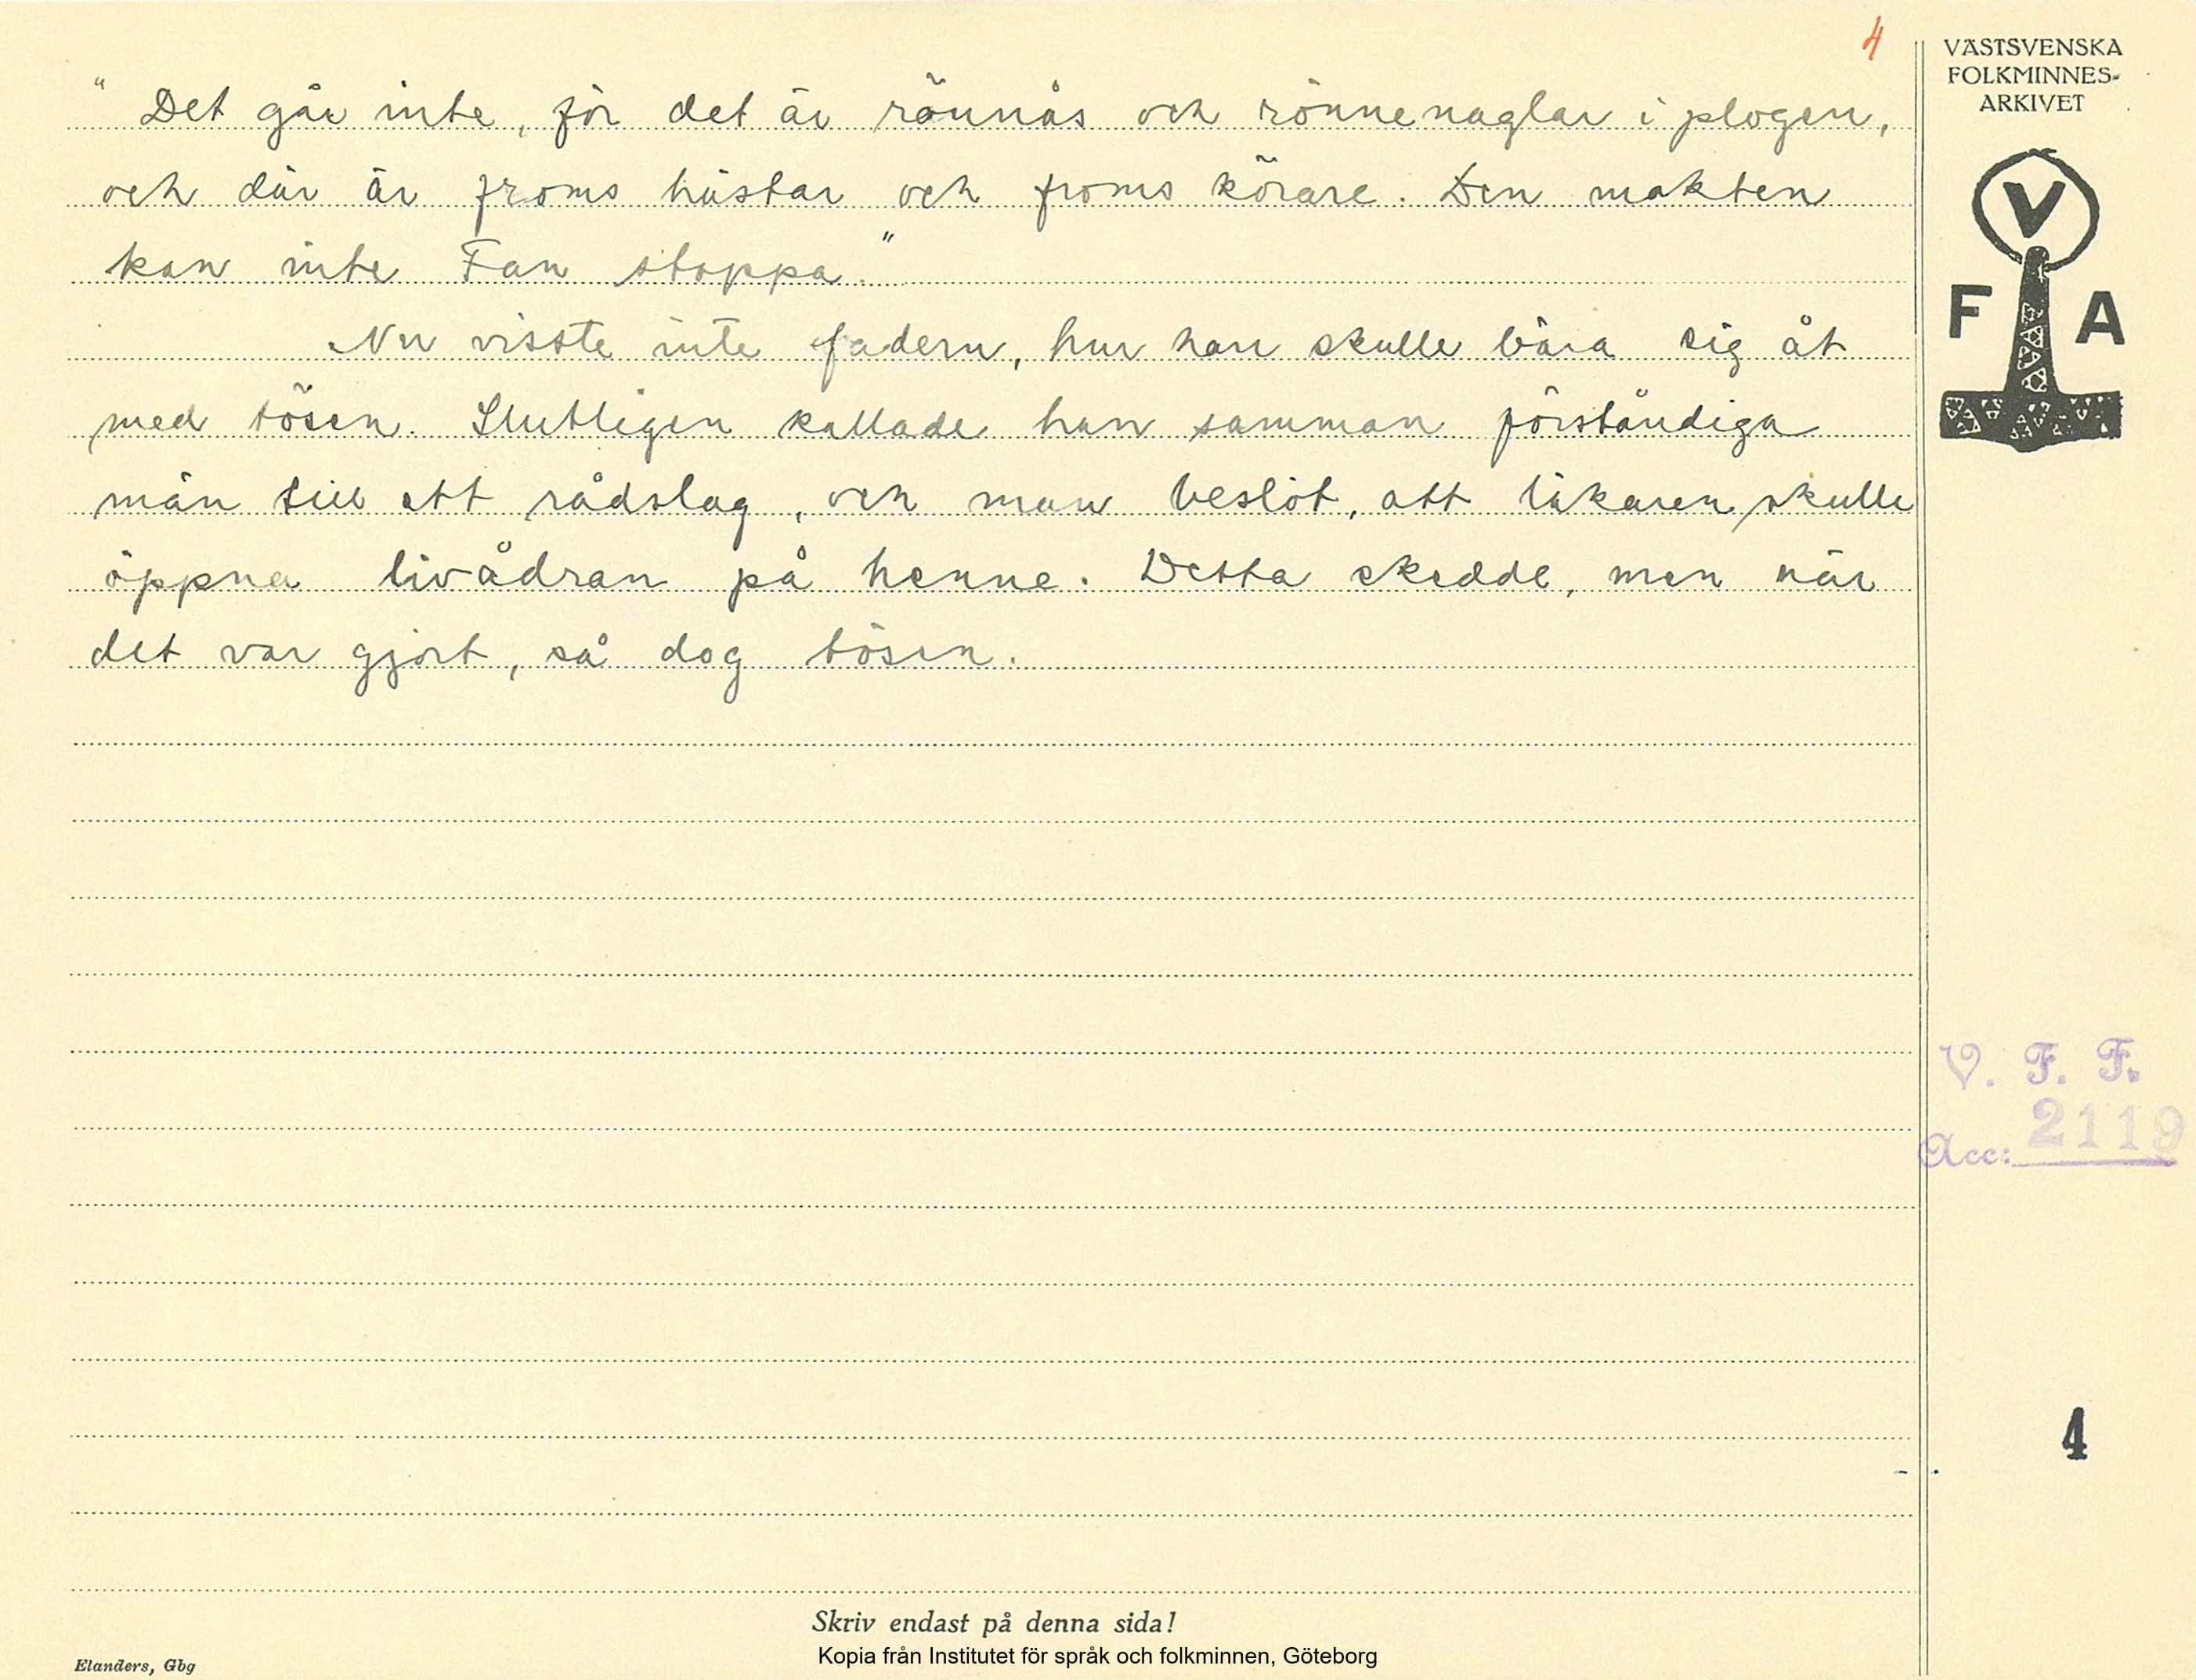 4
"Det går inte, för det är rönnås och rönnenaglar i plogen,
och där är froms hästar och froms körare. Den makten
kan inte Fan stoppa."
Nu visste inte fadern, hur han skulle bära sig åt
med tösen. Slutligen kallade han samman förståndiga
män till ett rådslag, och man beslöt, att läkaren skulle
öppna livådran på henne. Detta skedde, men när
det var gjort, så dog tösen.
VÄSTSVENSKA
FOLKMINNES-
ARKIVET
V
F A
V. F. F.
Acc: 2119
4
Skriv endast på denna sida!
Kopia från Institutet för språk och folkminnen, Göteborg
Elanders, Gbg